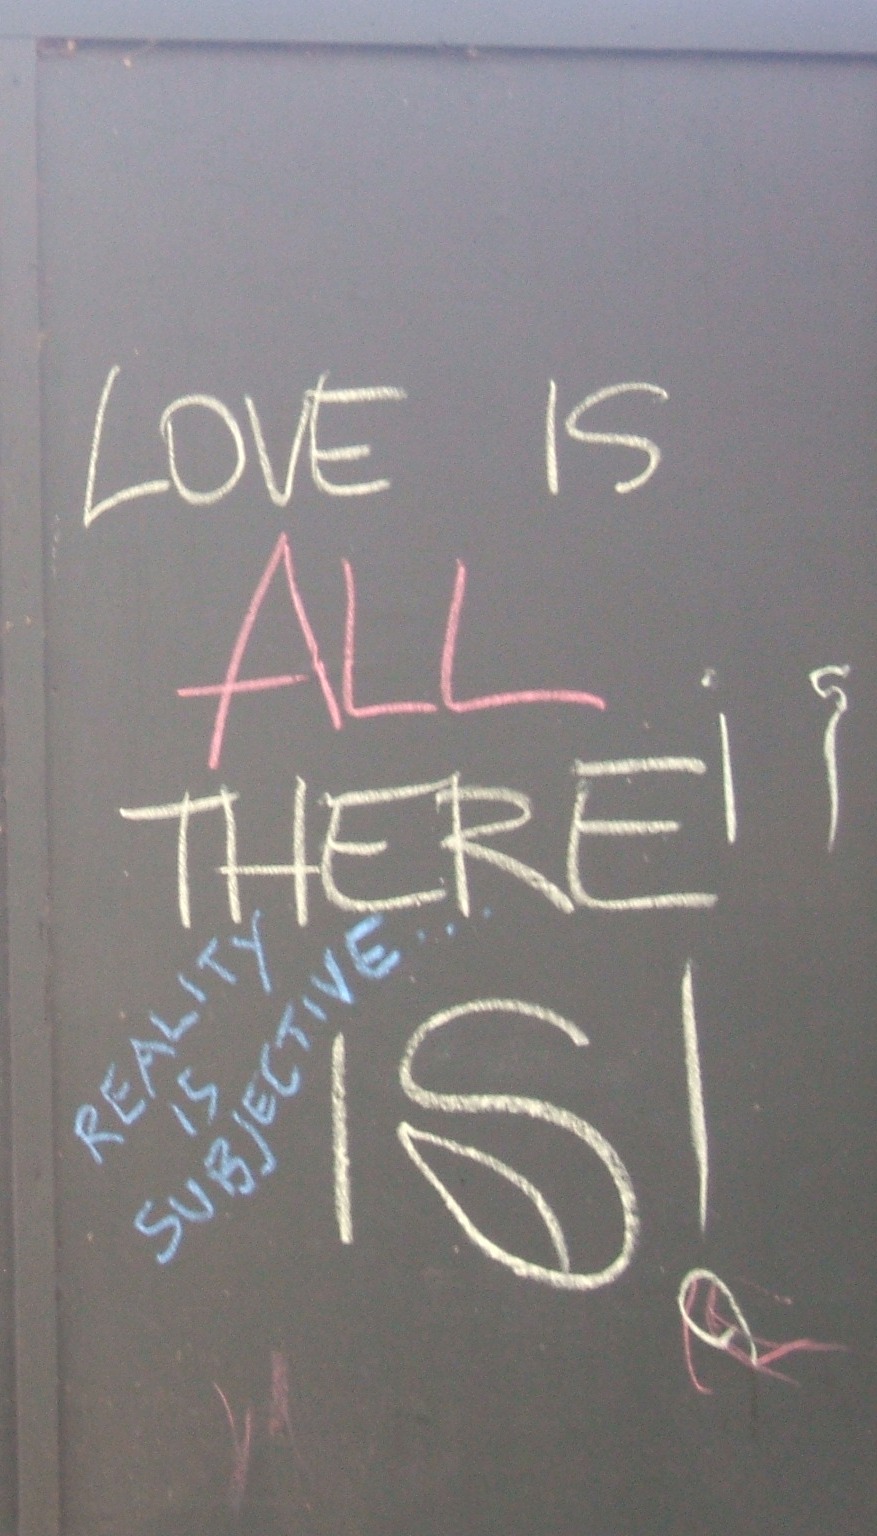 LOVE IS
ALL
THERE
IS!
REALITY
IS
SUBJECTIVE....